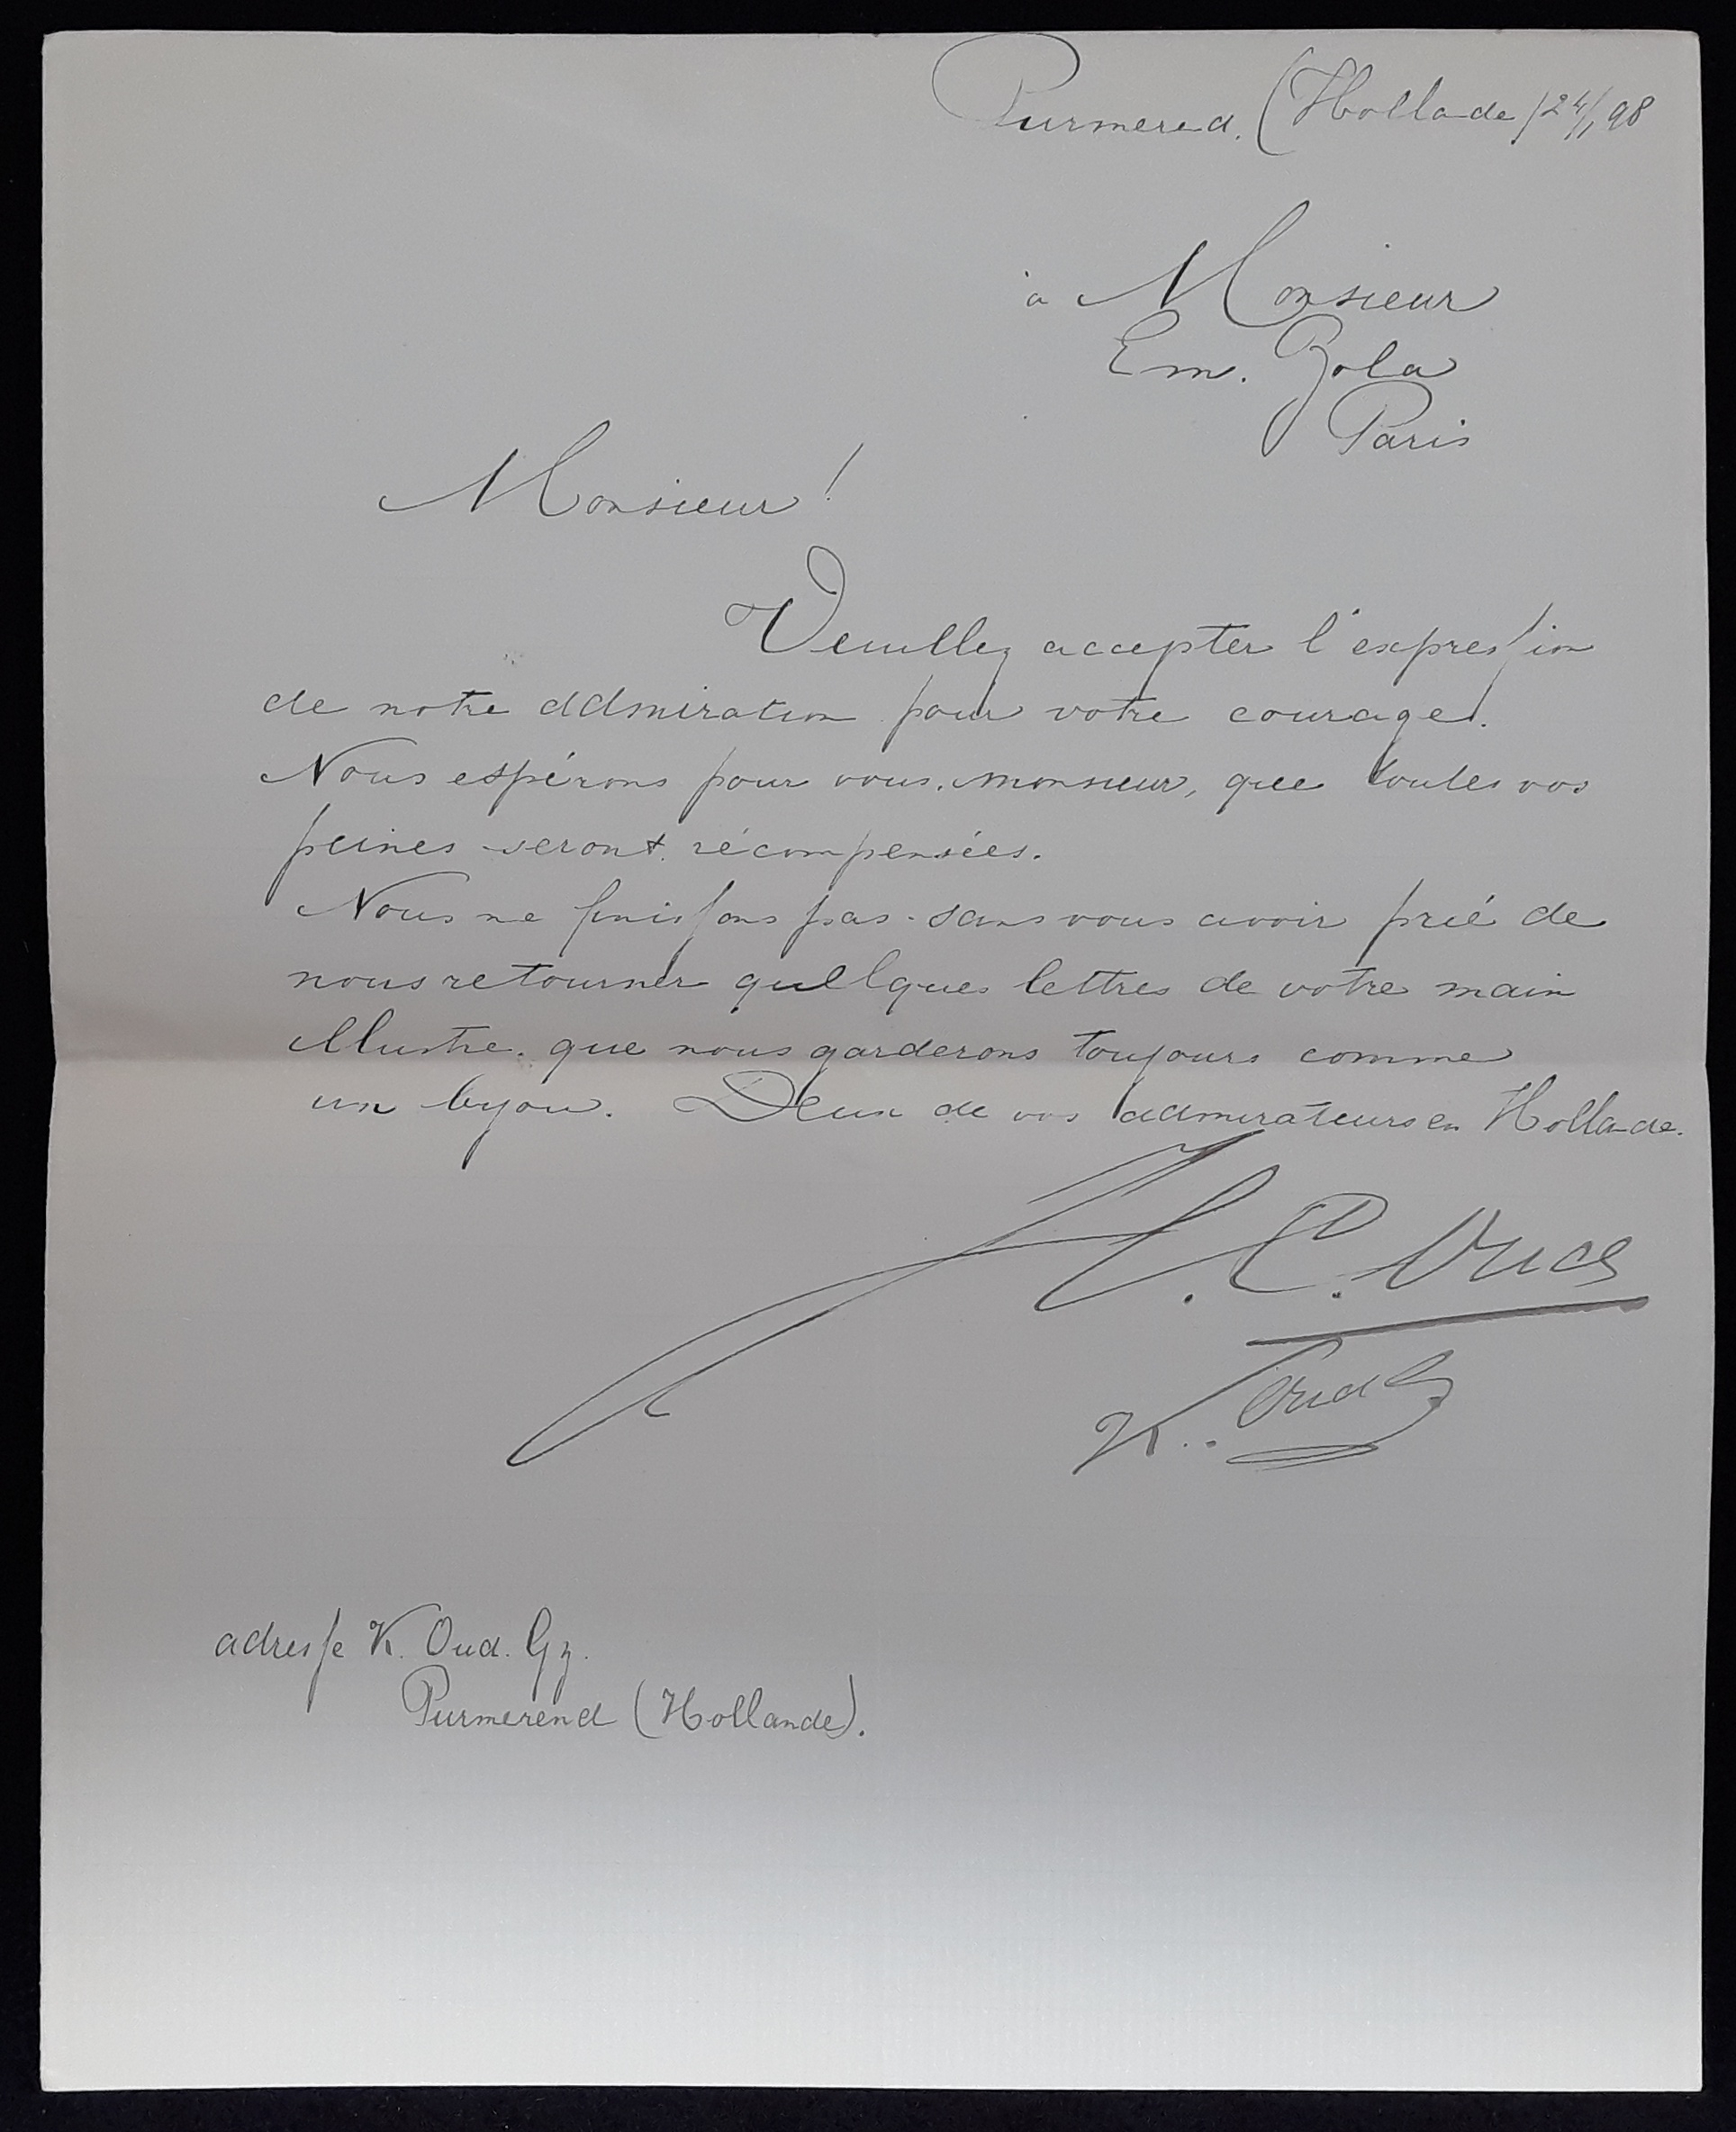 Purmerend. (Hollande) 24/1 98
à Monsieur
Em. Zola
Paris
Monsieur!
Veuillez accepter l'expression
de notre admiration pour votre courage.
Nous espérons pour vous, monsieur, que toutes vos
peines seront récompensées.
Nous ne finissons pas sans vous avoir prié de
nous retourner quellques lettres de votre main
illustre. que nous garderons toujours comme
un byou. Deux de vos admirateurs en Hollande.
C.
K. Oud Gz
adresse K. Oud. Gz.
Purmerend (Hollande).